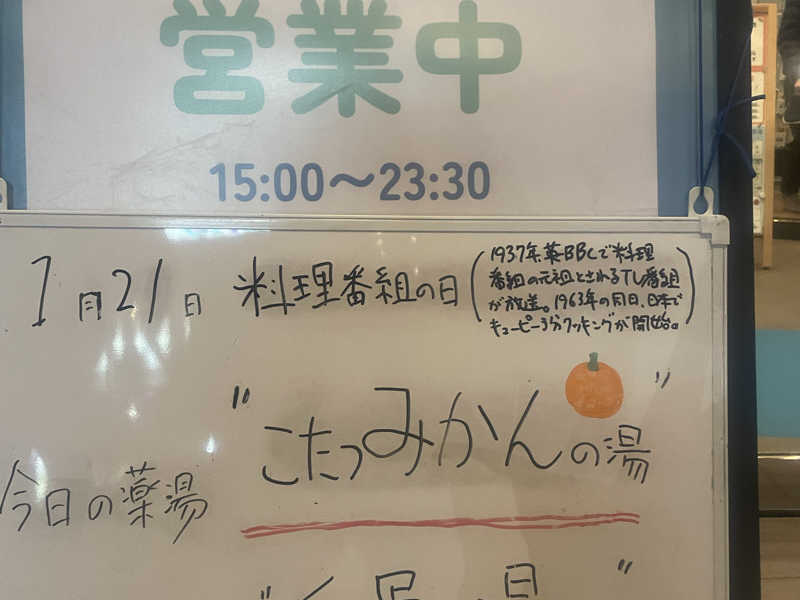 営業中
15:00〜23:30
1月21日 料理番組の日
(1937年、英BBCで料理
番組の元祖とされるTV番組
が放送。1963年の同日、日本で
キューピー3分クッキングが開始。)
"こたつみかんの湯"
今日の薬湯